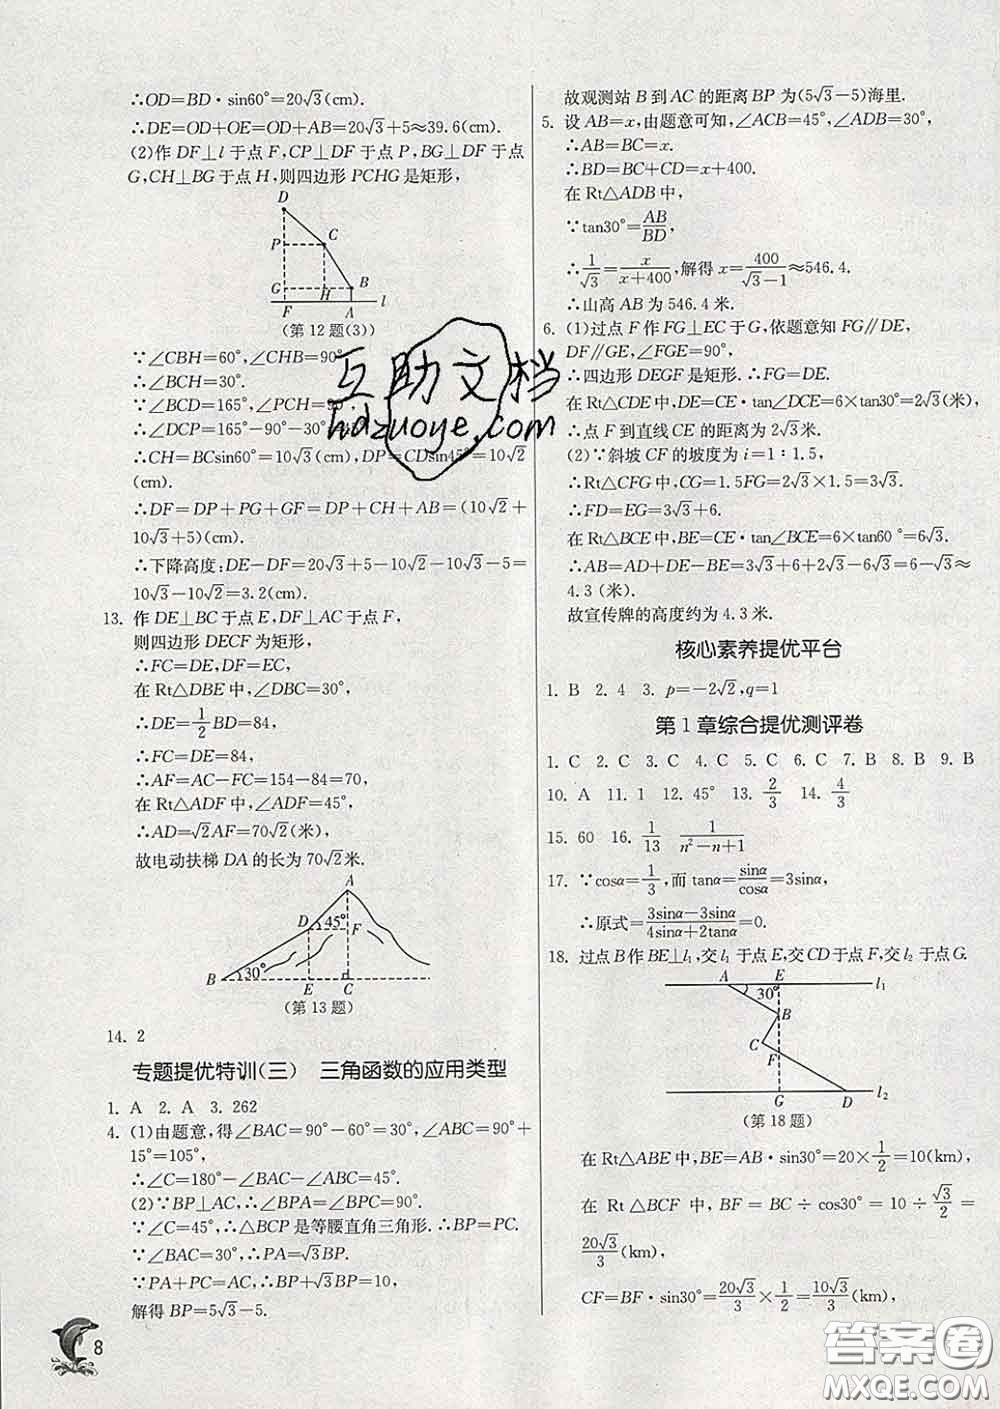 ∴OD=BD·sin60°=20√3(cm).
∴DE=OD+OE=OD+AB=20√3+5≈39.6(cm).
(2)作 DF⊥l 于点 F,CP⊥DF 于点 P,BG⊥DF 于点
G,CH⊥BG 于点 H,则四边形 PCHG 是矩形,
D
P
C
G
H
B
F
A
l
(第 12 题(3))
∵∠CBH=60°,∠CHB=90°
∴∠BCH=30°.
∵∠BCD=165°,∠PCH=90°
∴∠DCP=165°-90°-30°
∴CH=BCsin60°=10√3(cm),DP=CDsin45°=10√2
(cm).
∴DF=DP+PG+GF=DP+CH+AB=(10√2+
10√3+5)(cm).
∴下降高度:DE-DF=20√3+5-10√2-10√3-5=
10√3-10√2=3.2(cm).
13. 作 DE⊥BC 于点 E,DF⊥AC 于点 F,
则四边形 DECF 为矩形,
∴FC=DE,DF=EC,
在 Rt△DBE 中,∠DBC=30°,
∴DE=1/2 BD=84,
∴FC=DE=84,
∴AF=AC-FC=154-84=70,
在 Rt△ADF 中,∠ADF=45°,
∴AD=√2AF=70√2(米),
故电动扶梯 DA 的长为 70√2米.
A
D 45° F
B 30° E C
(第 13 题)
14. 2
专题提优特训(三) 三角函数的应用类型
1. A 2. A 3. 262
4. (1)由题意,得∠BAC=90°-60°=30°,∠ABC=90°+
15°=105°,
∴∠C=180°-∠BAC-∠ABC=45°.
(2)∵BP⊥AC,∴∠BPA=∠BPC=90°.
∵∠C=45°,∴△BCP 是等腰直角三角形.∴BP=PC.
∵∠BAC=30°,∴PA=√3BP.
∵PA+PC=AC,∴BP+√3BP=10,
解得 BP=5√3-5.
8
故观测站 B 到 AC 的距离 BP 为(5√3-5)海里.
5. 设 AB=x,由题意可知,∠ACB=45°,∠ADB=30°,
∴AB=BC=x.
∴BD=BC+CD=x+400.
在 Rt△ADB 中,
∵tan30°=AB/BD,
∴1/√3=x/(x+400),解得 x=400/(√3-1)≈546.4.
∴山高 AB 为 546.4 米.
6. (1)过点 F 作 FG⊥EC 于 G,依题意知 FG∥DE,
DF∥GE,∠FGE=90°,
∴四边形 DEGF 是矩形.∴FG=DE.
在 Rt△CDE 中,DE=CE·tan∠DCE=6×tan30°=2√3(米),
∴点 F 到直线 CE 的距离为 2√3米.
(2)∵斜坡 CF 的坡度为 i=1∶1.5,
∴Rt△CFG 中,CG=1.5FG=2√3×1.5=3√3.
∴FD=EG=3√3+6.
在 Rt△BCE 中,BE=CE·tan∠BCE=6×tan60°=6√3.
∴AB=AD+DE-BE=3√3+6+2√3-6√3=6-√3≈
4.3 (米).
故宣传牌的高度约为 4.3 米.
核心素养提优平台
1. B 2. 4 3. p=-2√2,q=1
第 1 章综合提优测评卷
1. C 2. C 3. C 4. C 5. C 6. C 7. B 8. B 9. B
10. A 11. 1 12. 45° 13. 2/3 14. 4/3
15. 60 16. 1/13 1/(n²-n+1)
17. ∵cosα=1/3,而 tanα=sinα/cosα=3sinα,
∴原式=(3sinα-3sinα)/(4sinα+2tanα)=0.
18. 过点 B 作 BE⊥l₁,交 l₁ 于点 E,交 CD 于点 F,交 l₂ 于点 G.
A E l₁
30°
B
C F
G D l₂
(第 18 题)
在 Rt△ABE 中,BE=AB·sin30°=20×1/2=10(km),
在 Rt△BCF 中,BF=BC÷cos30°=10÷√3/2=
20√3/3(km),
CF=BF·sin30°=20√3/3×1/2=10√3/3(km),
互助文档
hdzuoye.com
答案圈
MXQE.COM